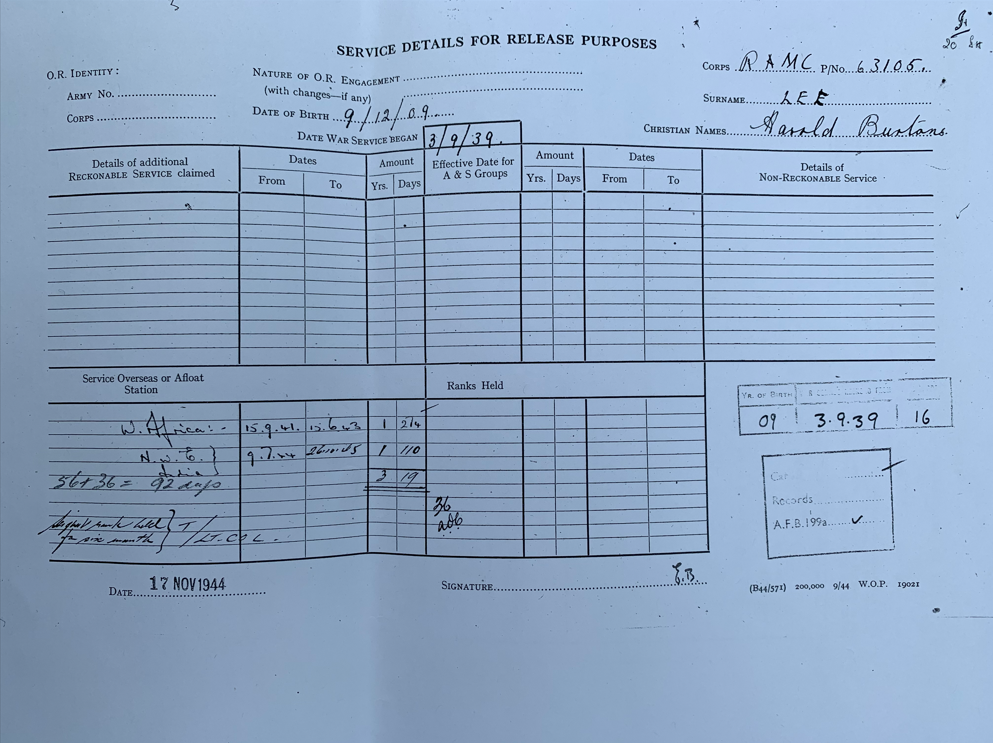 SERVICE DETAILS FOR RELEASE PURPOSES
20
O.R. IDENTITY:
ARMY No.
CORPS
NATURE OF O.R. ENGAGEMENT
(with changes—if any)
DATE OF BIRTH 9/12/09
DATE WAR SERVICE BEGAN 3/9/39.
CORPS RAMC P/No 63105.
SURNAME LEE
CHRISTIAN NAMES Harold Burtons
Details of additional RECKONABLE SERVICE claimed
Dates
From To
Amount
Yrs. Days
Effective Date for A & S Groups
Amount
Yrs. Days
Dates
From To
Details of NON-RECKONABLE SERVICE
Service Overseas or Afloat
Station
Ranks Held
W. Africa:- 15.9.41. 15.6.43 1 274
N.W.E. 9.7.44 1 110
India
3 19
56+36 = 92 days
36
highest rank held
for six months
T/LT. COL.
YR. OF BIRTH
09 3·9·39 16
Records
A.F.B.199a ✓
DATE 17 NOV 1944
SIGNATURE E.B.
(B44/571) 200,000 9/44 W.O.P. 19021